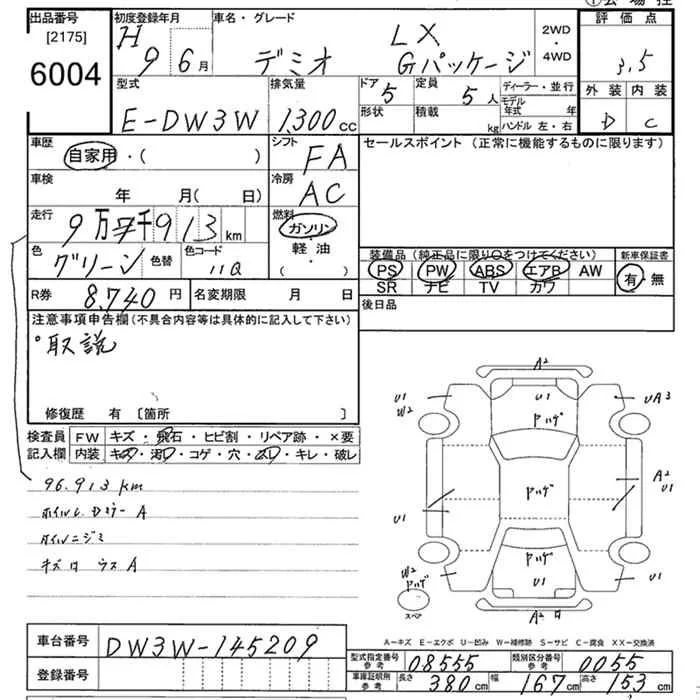 ① 会場控
出品番号 初度登録年月 車名・グレード 評価点
[2175] H 9 6月 デミオ LX Gパッケージ 2WD・4WD 3.5
6004
型式 排気量 ドア 5 定員 5人 ディーラー・並行 外装 内装
E-DW3W 1,300cc 形状 積載 kg モデル年式 年 D C
ハンドル 左・右
車歴 自家用・( ) シフト FA セールスポイント (正常に機能するものに限ります)
車検 年 月(日) 冷房 AC
走行 9万 913 km 燃料 ガソリン・軽油・( )
色 グリーン 色替 色コード 11Q
装備品 (純正品に限り○をつけてください) 新車保証書
PS PW ABS エアB AW 有・無
SR ナビ TV カワ
R券 8,740円 名変期限 月 日 後日品
注意事項申告欄 (不具合内容等は具体的に記入して下さい)
°取説
修復歴 有 [箇所 ]
検査員 FW キズ・飛石・ヒビ割・リペア跡・×要
記入欄 内装 キズ・汚レ・コゲ・穴・スレ・キレ・破レ
96.913km
キズ
A2
U1 U1 UA3
W2 ヤハゲ
A2
ヤハゲ U1
U1
W2 ヤハゲ
ヤハゲ U1
スペア A2
A－キズ E－エクボ U－凹み W－補修跡 S－サビ C－腐食 XX－交換済
車台番号 DW3W-145209
登録番号
型式指定番号 参考 08555 類別区分番号 参考 0055
車庫証明用 参考 長さ 380cm 幅 167cm 高さ 153cm